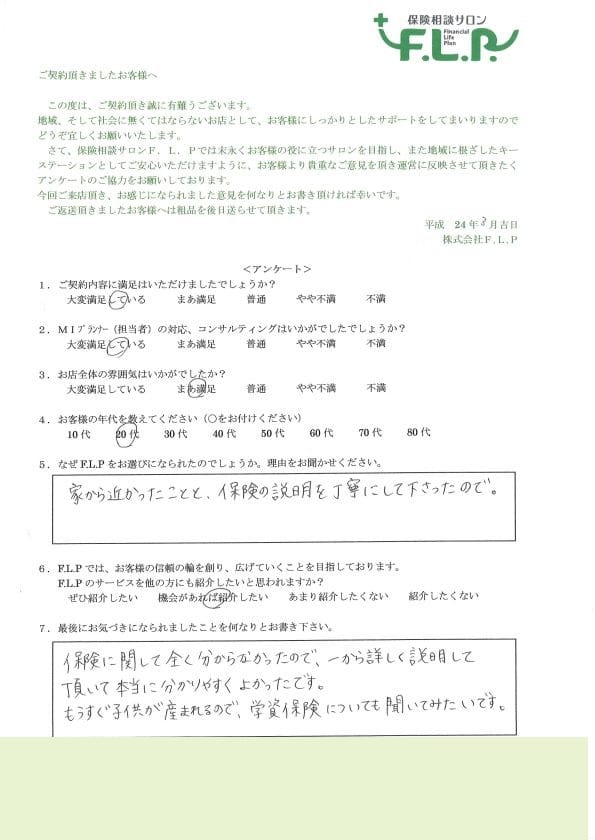 保険相談サロン
F.L.P.
Financial
Life
Plan
ご契約頂きましたお客様へ
この度は、ご契約頂き誠に有難うございます。
地域、そして社会に無くてはならないお店として、お客様にしっかりとしたサポートをしてまいりますので
どうぞ宜しくお願いいたします。
さて、保険相談サロンF．L．Pでは末永くお客様の役に立つサロンを目指し、また地域に根ざしたキー
ステーションとしてご安心いただけますように、お客様より貴重なご意見を頂き運営に反映させて頂きたく
アンケートのご協力をお願いしております。
今回ご来店頂き、お感じになられました意見を何なりとお書き頂ければ幸いです。
ご返送頂きましたお客様へは粗品を後日送らせて頂きます。
平成 24年8月吉日
株式会社F.L.P
＜アンケート＞
1．ご契約内容に満足はいただけましたでしょうか？
大変満足している まあ満足 普通 やや不満 不満
2．MIプランナー（担当者）の対応、コンサルティングはいかがでしたでしょうか？
大変満足している まあ満足 普通 やや不満 不満
3．お店全体の雰囲気はいかがでしたか？
大変満足している まあ満足 普通 やや不満 不満
4．お客様の年代を教えてください（○をお付けください）
10代 20代 30代 40代 50代 60代 70代 80代
5．なぜF.L.Pをお選びになられたのでしょうか。理由をお聞かせください。
家から近かったことと、保険の説明を丁寧にして下さったので。
6．F.L.Pでは、お客様の信頼の輪を創り、広げていくことを目指しております。
F.L.Pのサービスを他の方にも紹介したいと思われますか？
ぜひ紹介したい 機会があれば紹介したい あまり紹介したくない 紹介したくない
7．最後にお気づきになられましたことを何なりとお書き下さい。
保険に関して全く分からなかったので、一から詳しく説明して
頂いて本当に分かりやすくよかったです。
もうすぐ子供が産まれるので、学資保険についても聞いてみたいです。